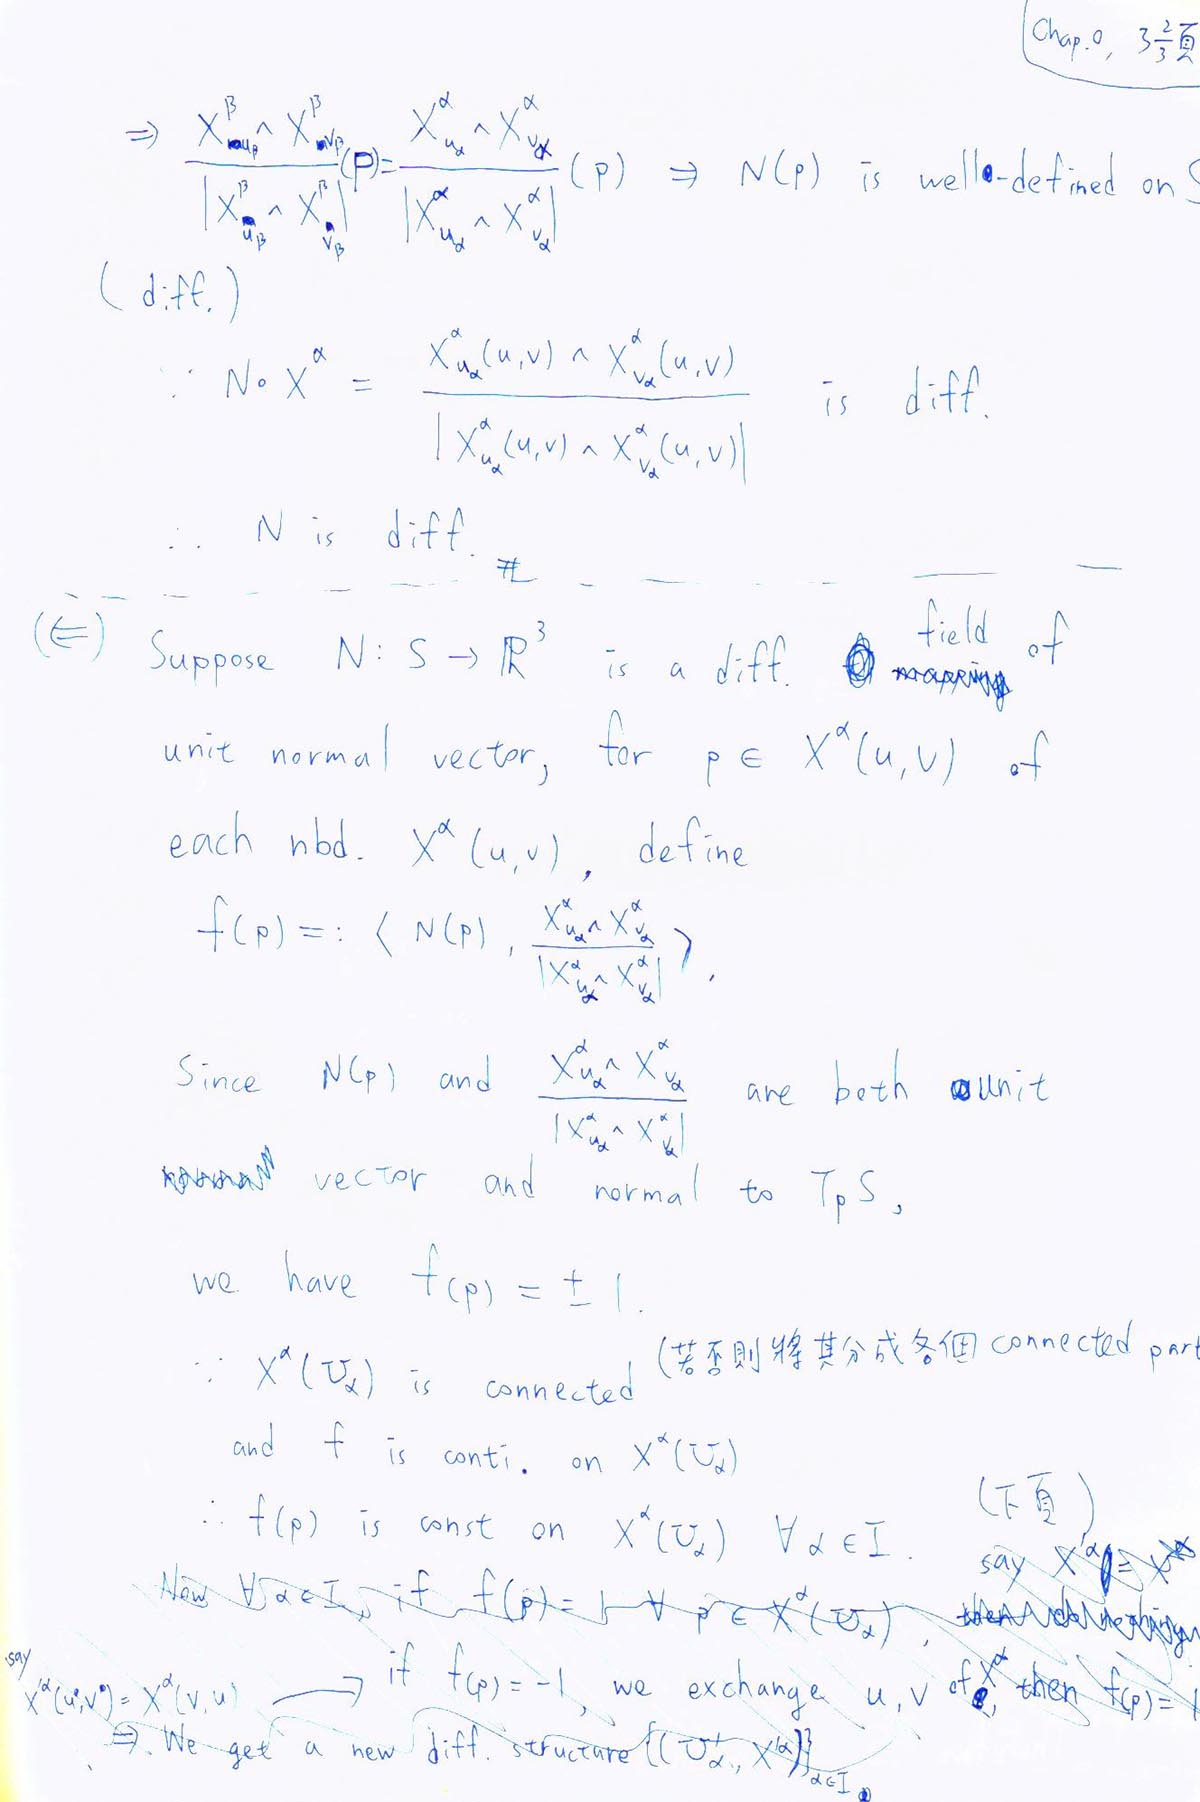 Chap.0, 3 2/3 頁
⇒ X^β_{u_β} ∧ X^β_{v_β} / |X^β_{u_β} ∧ X^β_{v_β}| (p) = X^α_{u_α} ∧ X^α_{v_α} / |X^α_{u_α} ∧ X^α_{v_α}| (p) ⇒ N(p) is well-defined on S
(diff.)
∵ N∘X^α = X^α_{u_α}(u,v) ∧ X^α_{v_α}(u,v) / |X^α_{u_α}(u,v) ∧ X^α_{v_α}(u,v)| is diff.
∴ N is diff. #
(⇐) Suppose N: S → ℝ^3 is a diff. field of
unit normal vector, for p ∈ X^α(u,v) of
each nbd. X^α(u,v), define
f(p) =: ⟨ N(p), X^α_{u_α} ∧ X^α_{v_α} / |X^α_{u_α} ∧ X^α_{v_α}| ⟩.
Since N(p) and X^α_{u_α} ∧ X^α_{v_α} / |X^α_{u_α} ∧ X^α_{v_α}| are both unit
vector and normal to T_pS,
we have f(p) = ± 1.
∵ X^α(U_α) is connected (若否則將其分成各個 connected part
and f is conti. on X^α(U_α)
∴ f(p) is const on X^α(U_α) ∀ α ∈ I.
(下頁)
Now ∀ α ∈ I, if f(p) = 1 ∀ p ∈ X^α(U_α), say X'^α = X^α
say X'^α(u,v) = X^α(v,u) → if f(p) = -1, we exchange u, v of X^α, then f(p) = 1
⇒. We get a new diff. structure {(U'_α, X'^α)}_{α∈I}.